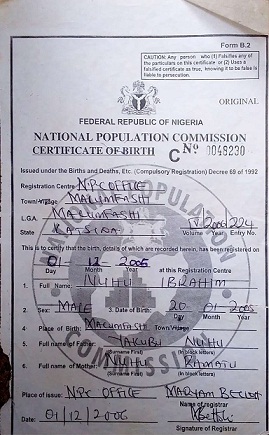 Form B.2
CAUTION: Any person who (1) Falsifies any of the particulars on this certificate or (2) Uses a falsified certificate as true, knowing it to be false is liable to persecution.
ORIGINAL
FEDERAL REPUBLIC OF NIGERIA
NATIONAL POPULATION COMMISSION
CERTIFICATE OF BIRTH C Nº 0049230
Issued under the Births and Deaths, Etc. (Compulsory Registration) Decree 69 of 1992
Registration Centre NPC OFFICE
Town/Village MALUMFASHI
L.G.A. MALUMFASHI
State KATSINA
Volume Year Entry No.
This is to certify that the birth, details of which are recorded herein, has been registered on
01 - 12 - 2006
Day Month Year at this Registration Centre
1. Full Name: NUHU IBRAHIM
2. Sex: MALE 3. Date of Birth: 20 01 2005
Day Month Year
4. Place of Birth: Malumfashi Town/Village
5. Full Name of Father: YAKUBU NUHU
(Surname First) (In block letters)
6. Full Name of Mother: NUHU RAMATU
(Surname First) (In block letters)
Place of issue: NPC OFFICE MARYAM
Name of registrar
Date: 01/12/2006
Signature of Registrar
NATIONAL POPULATION COMMISSION